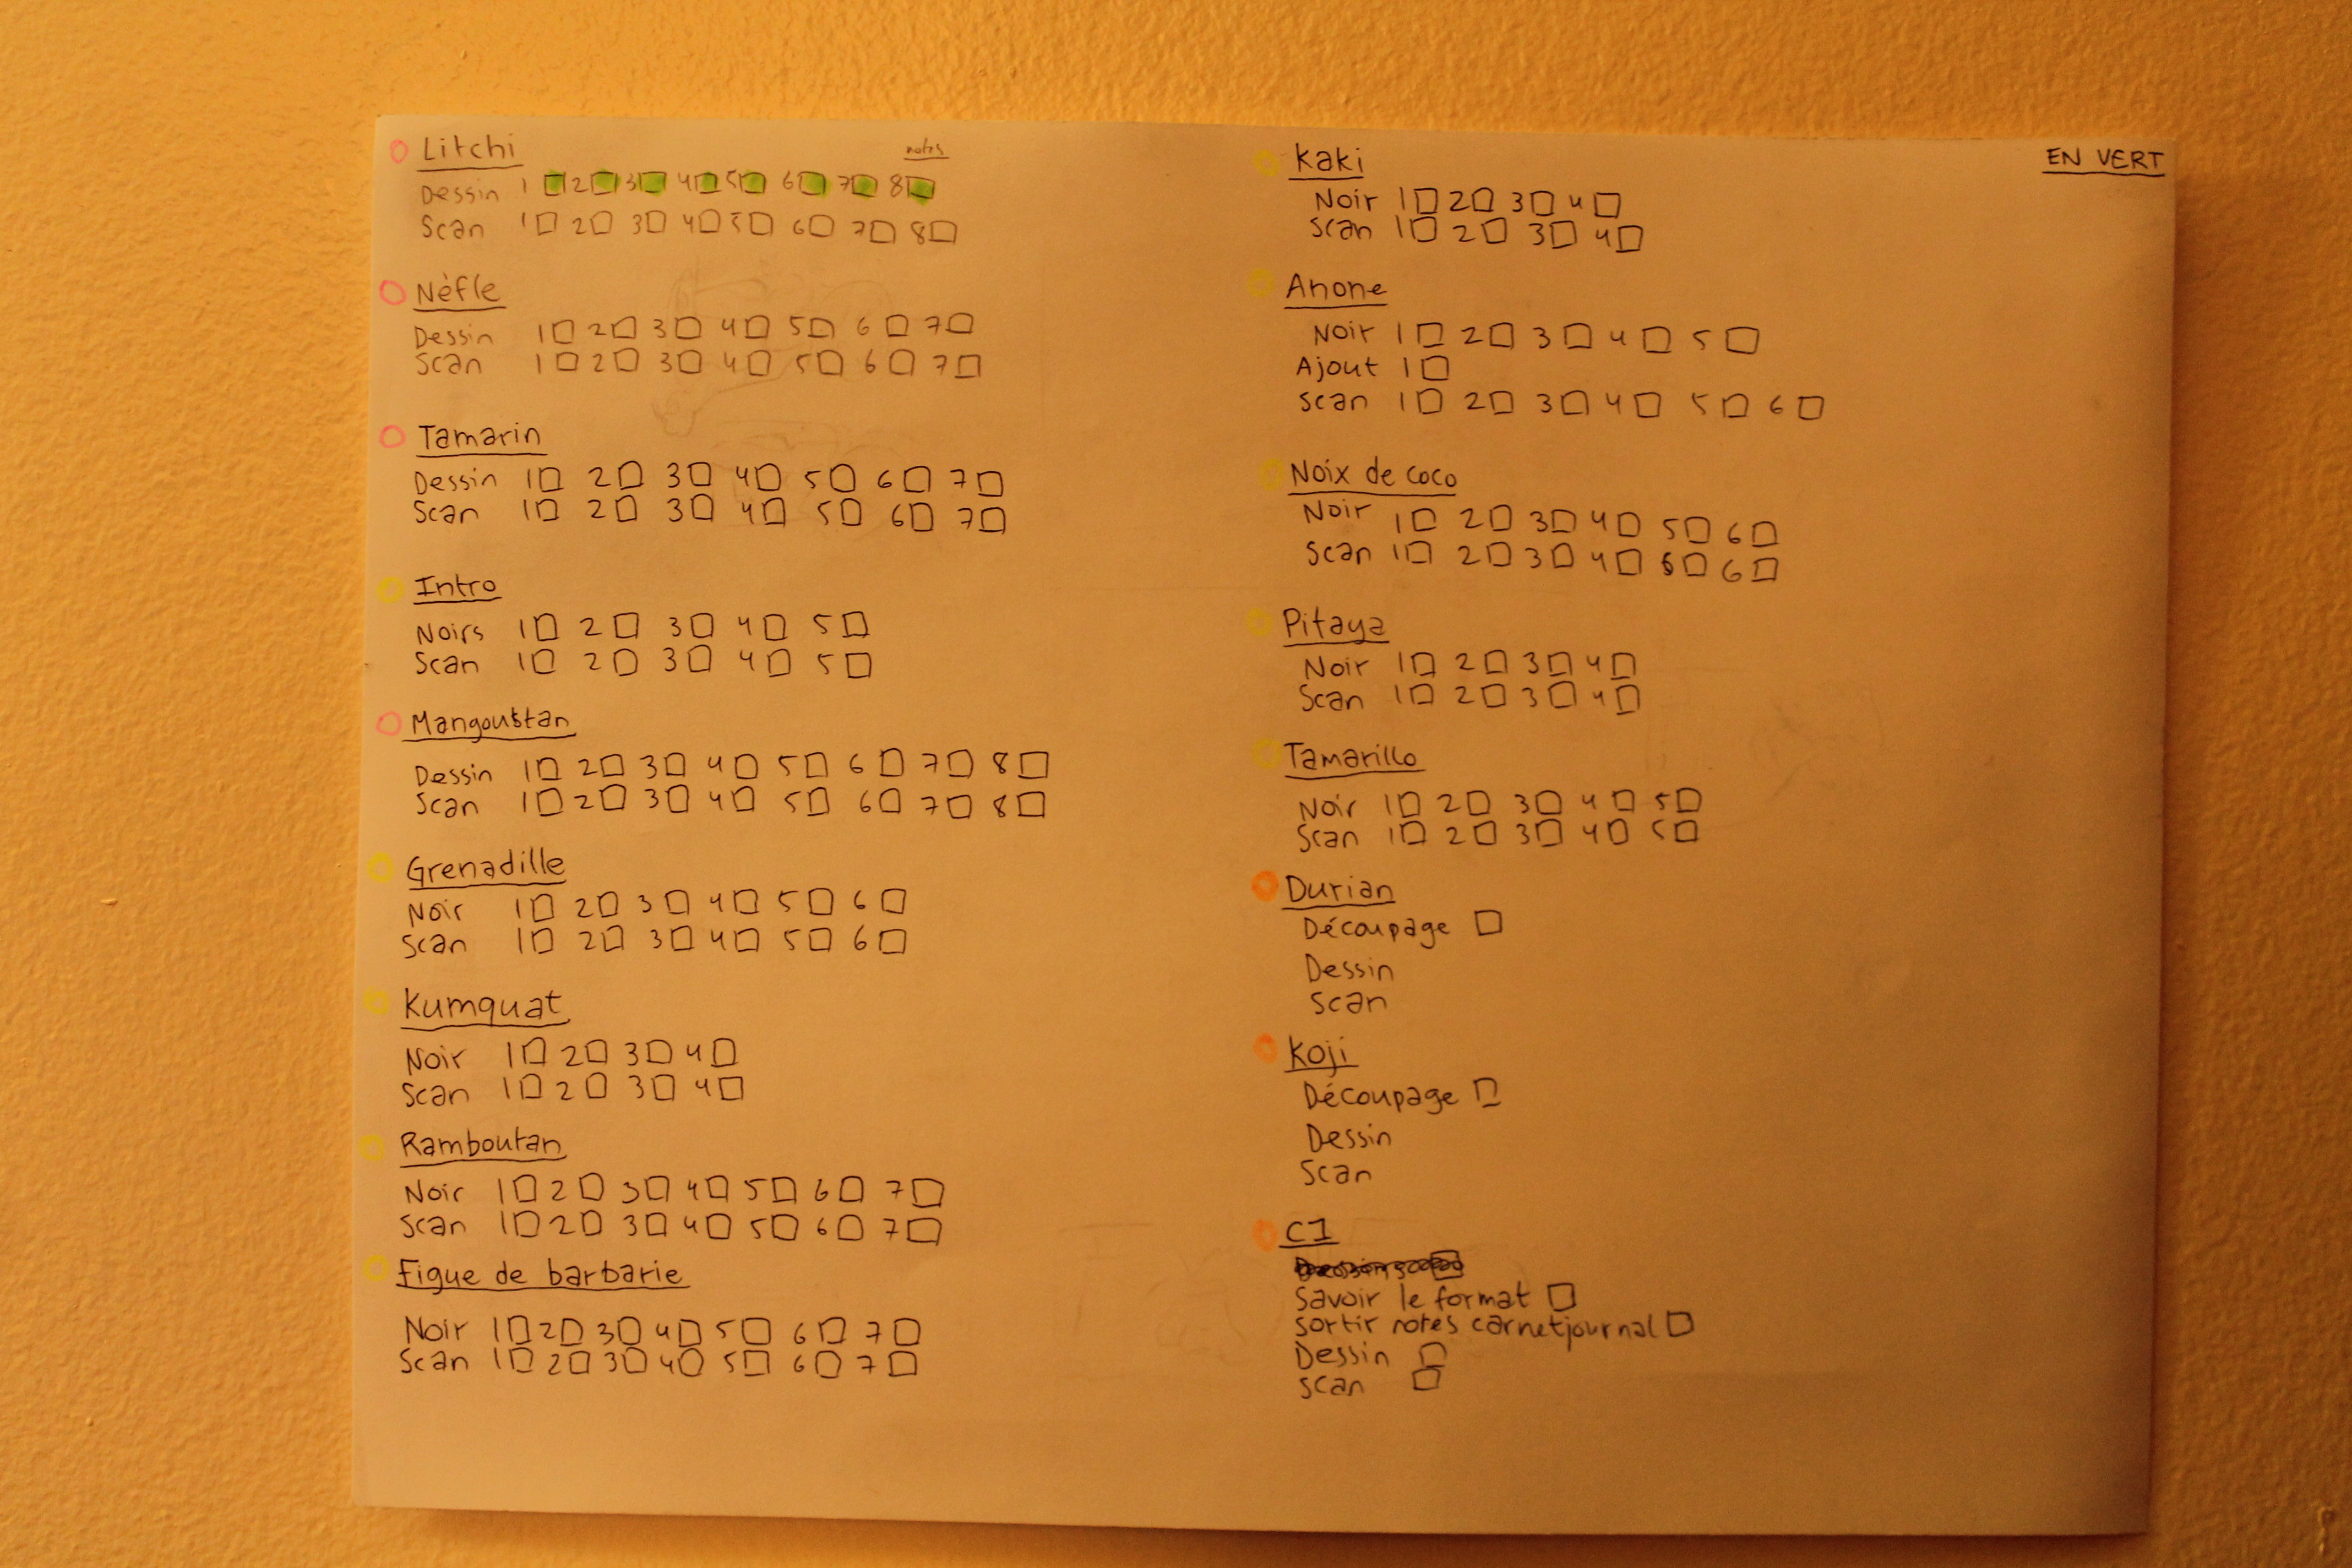 Litchi
notes
Dessin 1 2 3 4 5 6 7 8
Scan 1 2 3 4 5 6 7 8
Nèfle
Dessin 1 2 3 4 5 6 7
Scan 1 2 3 4 5 6 7
Tamarin
Dessin 1 2 3 4 5 6 7
Scan 1 2 3 4 5 6 7
Intro
Noirs 1 2 3 4 5
Scan 1 2 3 4 5
Mangoustan
Dessin 1 2 3 4 5 6 7 8
Scan 1 2 3 4 5 6 7 8
Grenadille
Noir 1 2 3 4 5 6
Scan 1 2 3 4 5 6
Kumquat
Noir 1 2 3 4
Scan 1 2 3 4
Ramboutan
Noir 1 2 3 4 5 6 7
Scan 1 2 3 4 5 6 7
Figue de barbarie
Noir 1 2 3 4 5 6 7
Scan 1 2 3 4 5 6 7
EN VERT
Kaki
Noir 1 2 3 4
Scan 1 2 3 4
Anone
Noir 1 2 3 4 5
Ajout 1
Scan 1 2 3 4 5 6
Noix de coco
Noir 1 2 3 4 5 6
Scan 1 2 3 4 5 6
Pitaya
Noir 1 2 3 4
Scan 1 2 3 4
Tamarillo
Noir 1 2 3 4 5
Scan 1 2 3 4 5
Durian
Découpage
Dessin
Scan
Koji
Découpage
Dessin
Scan
C1
Savoir le format
sortir notes carnetjournal
Dessin
scan